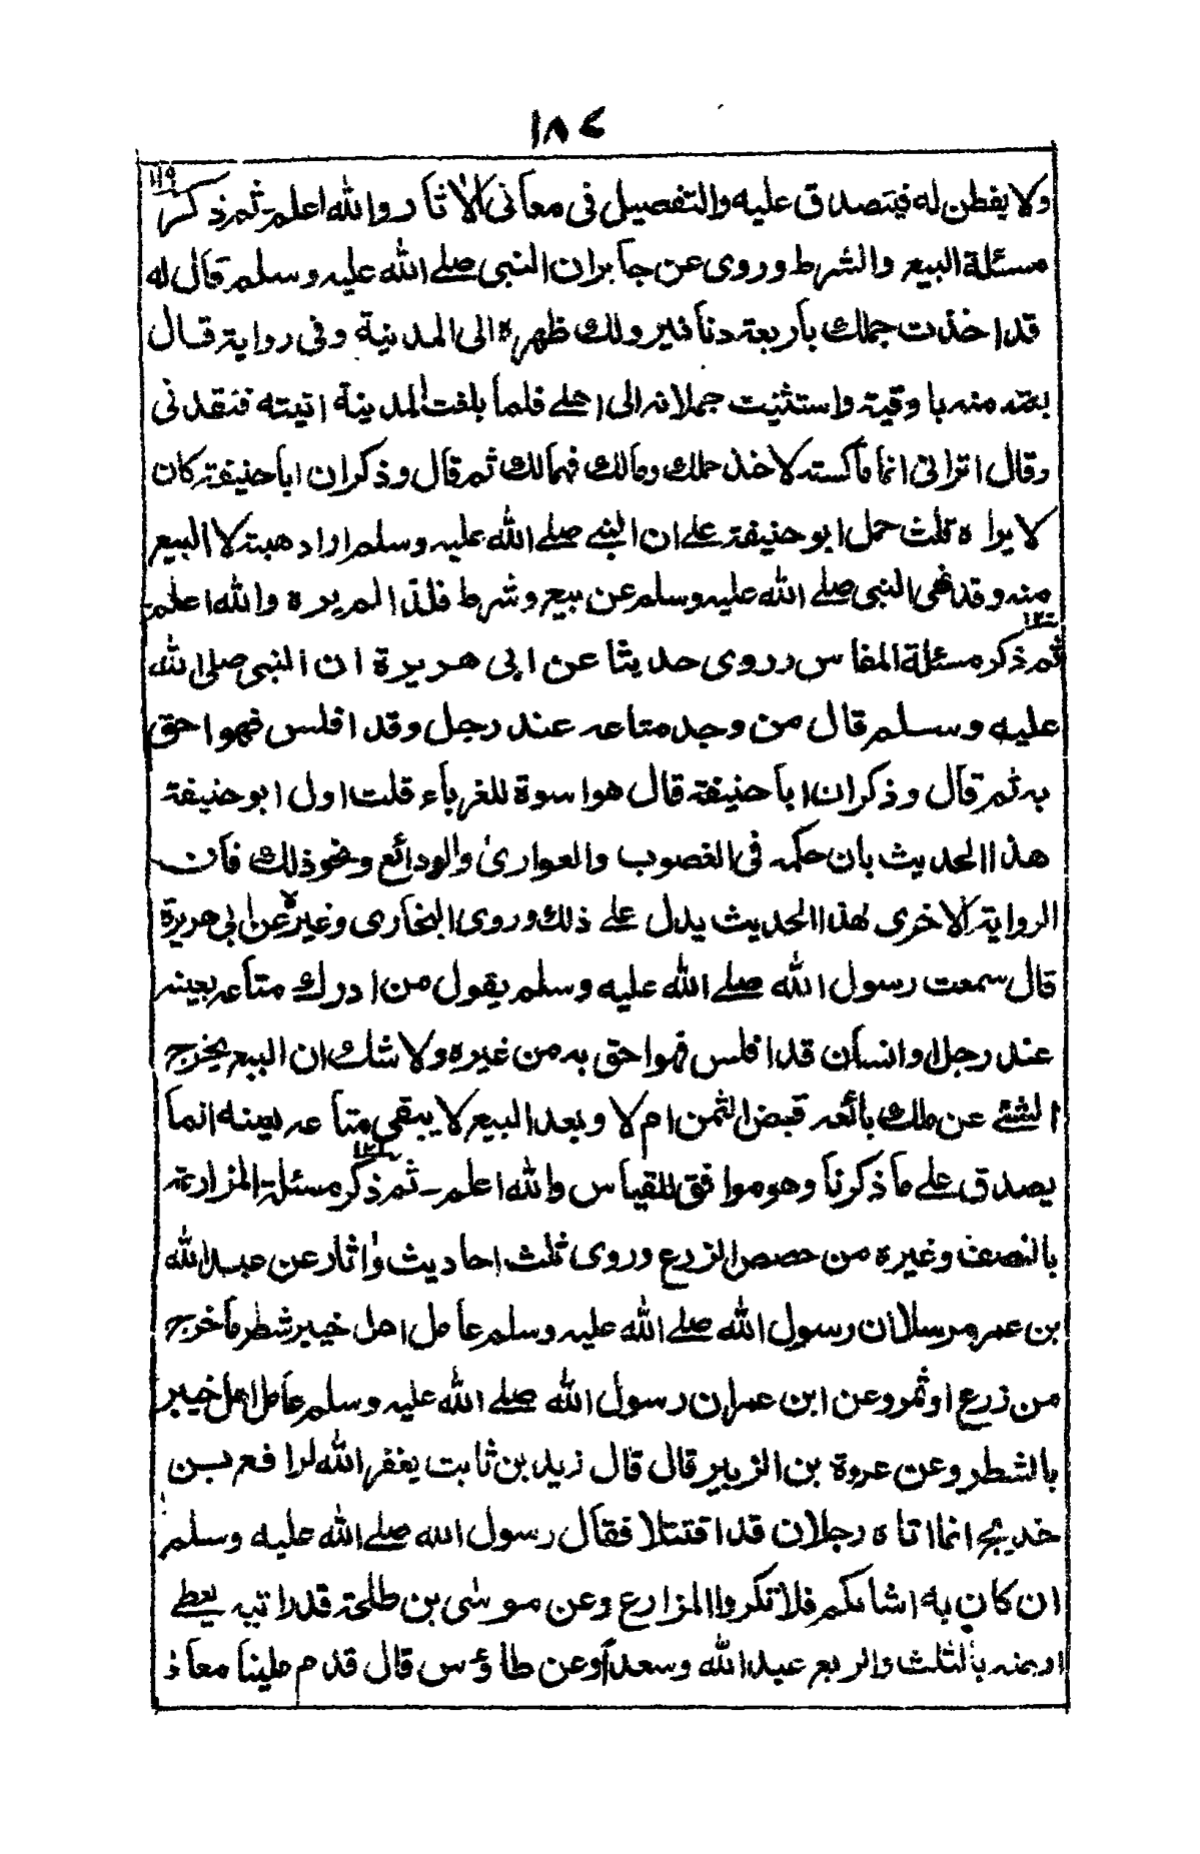 ١٨٤
١١٩
ولا يفطن له فيتصدق عليه والتفصيل فى معانى الاثار والله اعلم۔ ثم ذكر
مسئلة البيع والشرط وروى عن جابر ان النبى صلے الله عليه وسلم قال له
قد اخذت جملك باربعة دنانير ولك ظهره الى المدينة وفى رواية قال
بعته منه باوقية واستثنيت حملانه الى اهلے فلما بلغت المدينة اتيته فنقدنى
وقال اترانى انما ماكستك لاخذ جملك ومالك فهمالك ثم قال وذكر ان ابا حنيفة كان
لا يراه قلت حمل ابو حنيفة علے ان النبے صلے الله عليه وسلم اراد هبته لا البيع
منه وقد نهى النبى صلے الله عليه وسلم عن بيع وشرط فلذا لم يره والله اعلم
١٢٠
ثم ذكر مسئلة المفلس وروى حديثا عن ابى هريرة ان النبى صلى الله
عليه وسلم قال من وجد متاعه عند رجل وقد افلس فهو احق
به ثم قال وذكر ان ابا حنيفة قال هو اسوة للغرباء قلت اول ابو حنيفة
هذا الحديث بان حكمه فى الغصوب والعوارى والودائع ونحو ذلك فان
الرواية الاخرى لهذا الحديث يدل علے ذلك وروى البخارى وغيره عن ابى هريرة
قال سمعت رسول الله صلے الله عليه وسلم يقول من ادرك متاعه بعينه
عند رجل وانسان قد افلس فهو احق به من غيره ولا شك ان البيع يخرج
الشئے عن ملك بائعه قبض الثمن ام لا وبعد البيع لا يبقى متاعه بعينه انما
١٢١
يصدق علے ما ذكرنا وهو موافق للقياس والله اعلم۔ ثم ذكر مسئلة المزارعة
بالنصف وغيره من حصص الزرع وروى ثلث احاديث واثار عن عبد الله
بن عمر مرسلا ان رسول الله صلے الله عليه وسلم عامل اهل خيبر شطر ما خرج
من زرع او ثمر وعن ابن عمر ان رسول الله صلے الله عليه وسلم عامل اهل خيبر
بالشطر وعن عروة بن الزبير قال قال زيد بن ثابت يغفر الله لرافع بن
خديج انما اتاه رجلان قد اقتتلا فقال رسول الله صلے الله عليه وسلم
ان كان به اشانكم فلا تكروا المزارع وعن موسٰى بن طلحة قد اتيه يعطے
ارضه بالثلث والربع عبد الله وسعد وعن طاؤس قال قدم علينا معاذ